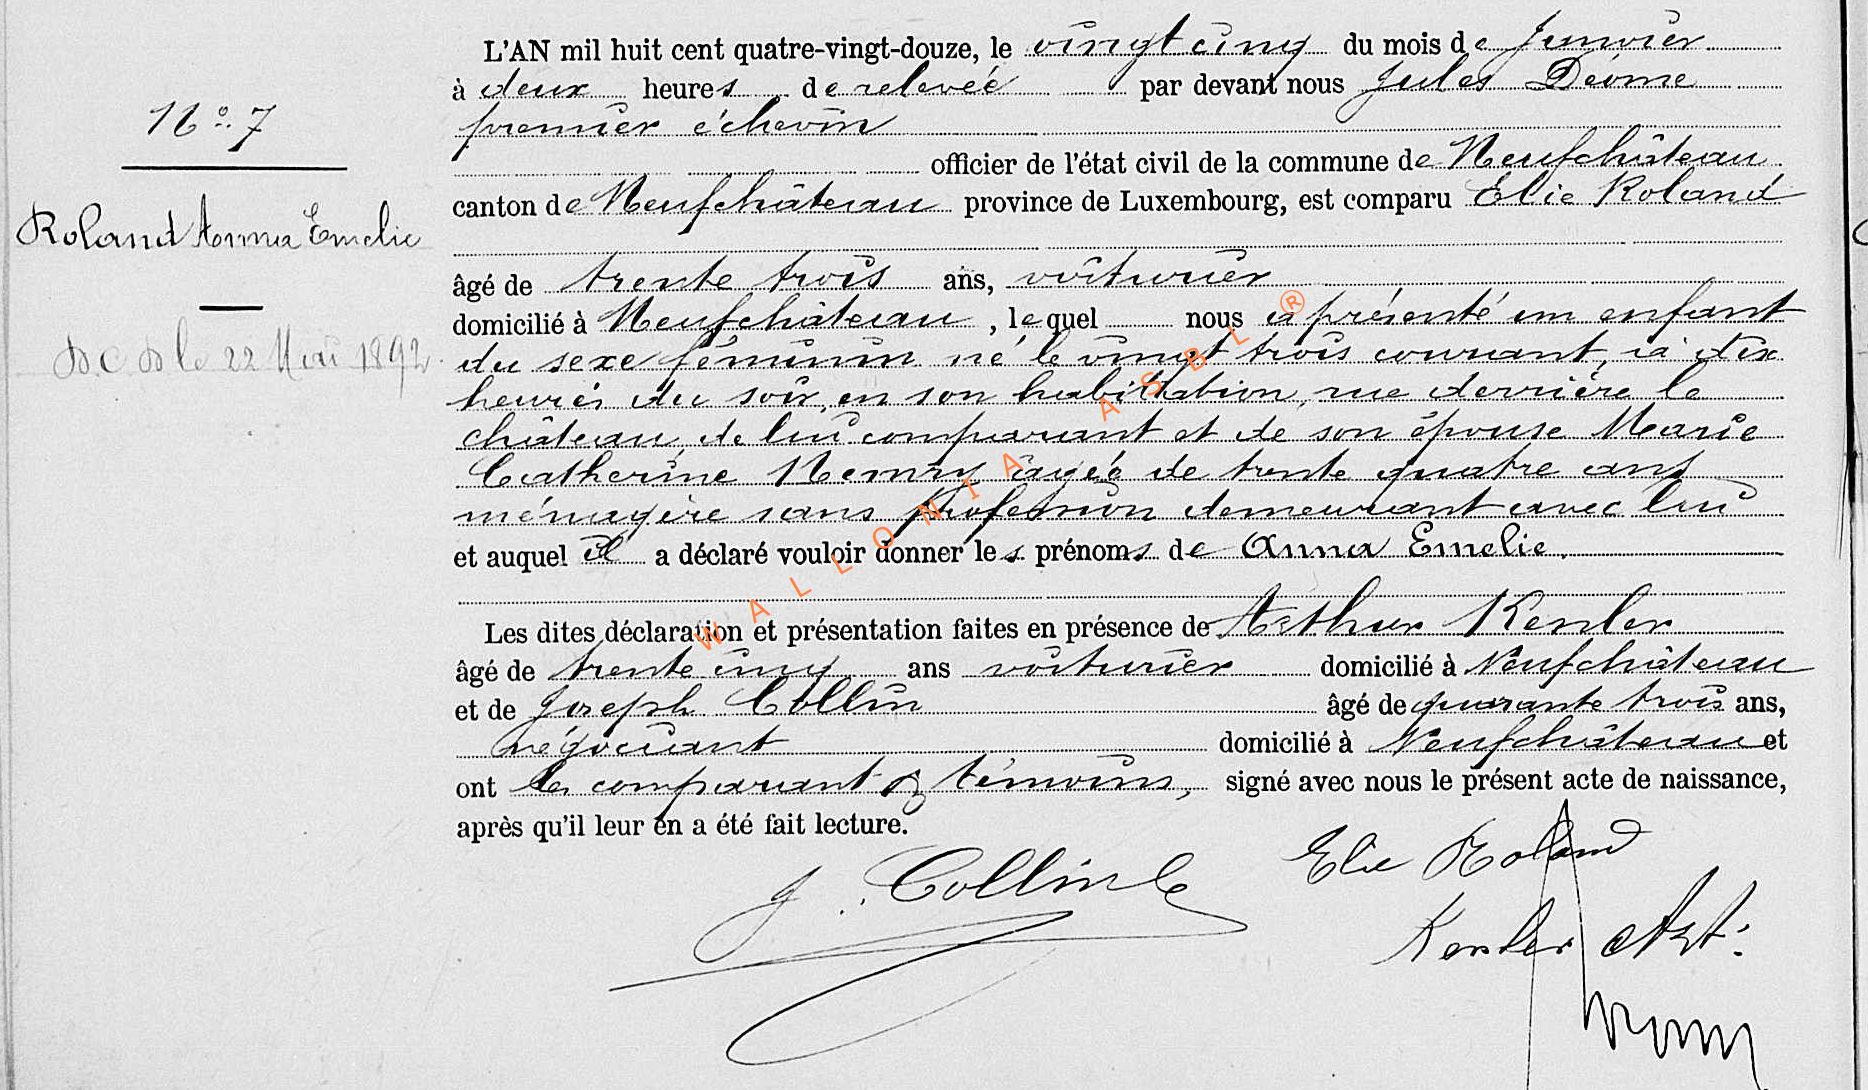 L'AN mil huit cent quatre-vingt-douze, le vingt cinq du mois de Janvier
à deux heures de relevée par devant nous Jules Déome
premier échevin
officier de l'état civil de la commune de Neufchâteau
canton de Neufchâteau province de Luxembourg, est comparu Elie Roland
âgé de trente trois ans, voiturier
domicilié à Neufchâteau, lequel nous a présenté un enfant
du sexe féminin né le vingt trois courant, à dix
heures du soir, en son habitation, rue derrière le
château, de lui comparant et de son épouse Marie
Catherine Nemry âgée de trente quatre ans
ménagère sans profession demeurant avec lui
et auquel il a déclaré vouloir donner les prénoms de Anna Emelie.
Les dites déclaration et présentation faites en présence de Arthur Kesler
âgé de trente cinq ans voiturier domicilié à Neufchâteau
et de Joseph Collin âgé de quarante trois ans,
négociant domicilié à Neufchâteau et
ont les comparant & témoins, signé avec nous le présent acte de naissance,
après qu'il leur en a été fait lecture.
Elie Roland
J. Collin
Kesler Art:
No. 7
Roland Anna Emelie
DCD le 22 Mai 1892.
WALLONIA ASBL ®